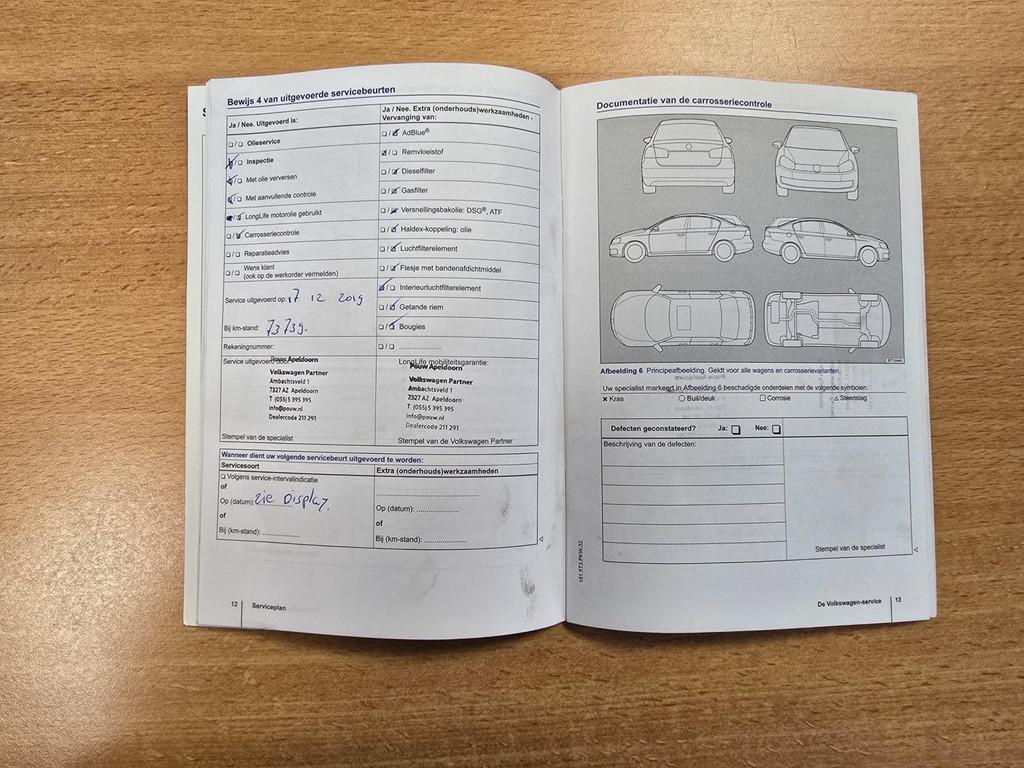 Bewijs 4 van uitgevoerde servicebeurten
Ja / Nee. Uitgevoerd is:
Olieservice
Inspectie
Met olie verversen
Met aanvullende controle
LongLife motorolie gebruikt
Carrosseriecontrole
Reparatieadvies
Wens klant
(ook op de werkorder vermelden)
Service uitgevoerd op: 17 12 2019
Bij km-stand: 73739.
Rekeningnummer:
Service uitgevoerd door:
Pouw Apeldoorn
Volkswagen Partner
Ambachtsveld 1
7327 AZ Apeldoorn
T (055) 5 395 395
info@pouw.nl
Dealercode 211 291
Stempel van de specialist
Ja / Nee. Extra (onderhouds)werkzaamheden -
Vervanging van:
AdBlue®
Remvloeistof
Dieselfilter
Gasfilter
Versnellingsbakolie: DSG®, ATF
Haldex-koppeling: olie
Luchtfilterelement
Flesje met bandenafdichtmiddel
Interieurluchtfilterelement
Getande riem
Bougies
LongLife mobiliteitsgarantie:
Pouw Apeldoorn
Volkswagen Partner
Ambachtsveld 1
7327 AZ Apeldoorn
T (055) 5 395 395
info@pouw.nl
Dealercode 211 291
Stempel van de Volkswagen Partner
Wanneer dient uw volgende servicebeurt uitgevoerd te worden:
Servicesoort
Volgens service-intervalindicatie
of
Op (datum): zie Display.
of
Bij (km-stand):
Extra (onderhouds)werkzaamheden
Op (datum):
of
Bij (km-stand):
12 Serviceplan
Documentatie van de carrosseriecontrole
Afbeelding 6 Principeafbeelding. Geldt voor alle wagens en carrosserievarianten.
Uw specialist markeert in Afbeelding 6 beschadigde onderdelen met de volgende symbolen:
× Kras ○ Buil/deuk □ Corrosie △ Steenslag
Defecten geconstateerd? Ja: Nee:
Beschrijving van de defecten:
Stempel van de specialist
151.5T3.PKW.32
De Volkswagen-service 13